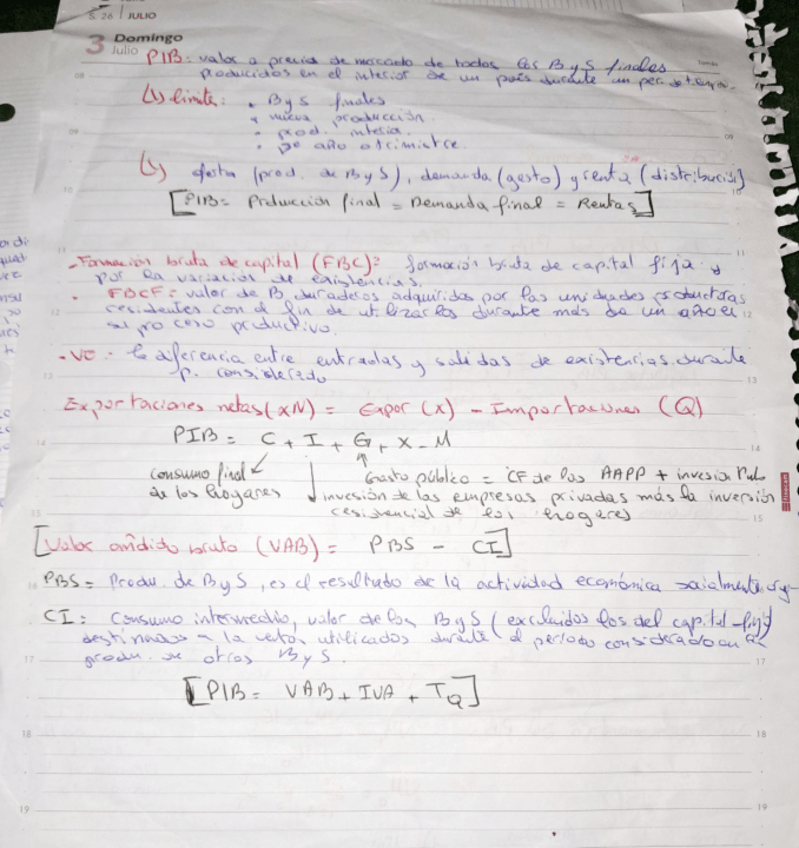 S. 26 | JULIO
3 Domingo
Julio
PIB: valor a precio de mercado de todos los B y S finales
producidos en el interior de un país durante un per. de tempo.
08
(↳) limite: • B y S finales
• nueva producción.
09 • prod. interia. 09
• po año o trimistre.
(↳) oferta (prod. de B y S), demanda (gasto) y renta (distribución)
10 [PIB = Producción final = Demanda final = Rentas] 10
11 11
- Formación bruta de capital (FBC): formación bruta de capital fija y
por la variación de existencias.
• FBCF: valor de B duraderos adquiridos por las unidades productoras
residentes con el fin de utilizarlos durante más de un año en 12
su proceso productivo.
- VE: la diferencia entre entradas y salidas de existencias durante
p. considerado
13 13
Exportaciones netas (XN) = Expor (X) - Importaciones (Q)
PIB = C + I + G + X - M
14 14
consumo final Gasto público = CF de las AAPP + invesión Pub
de los hogares invesión de las empresas privadas más la inversión
15 residencial de los hogares 15
[Valor añidido bruto (VAB) = PBS - CI]
16 PBS = Produ. de B y S, es el resultado de la actividad económica socialmente
CI: Consumo intermedio, valor de los B y S (excluidos los del capital fijo)
destinados a la utilizados durante el periodo considerado en la
17 produ. de otros B y S. 17
[PIB = VAB + IVA + TQ]
18 18
19 19